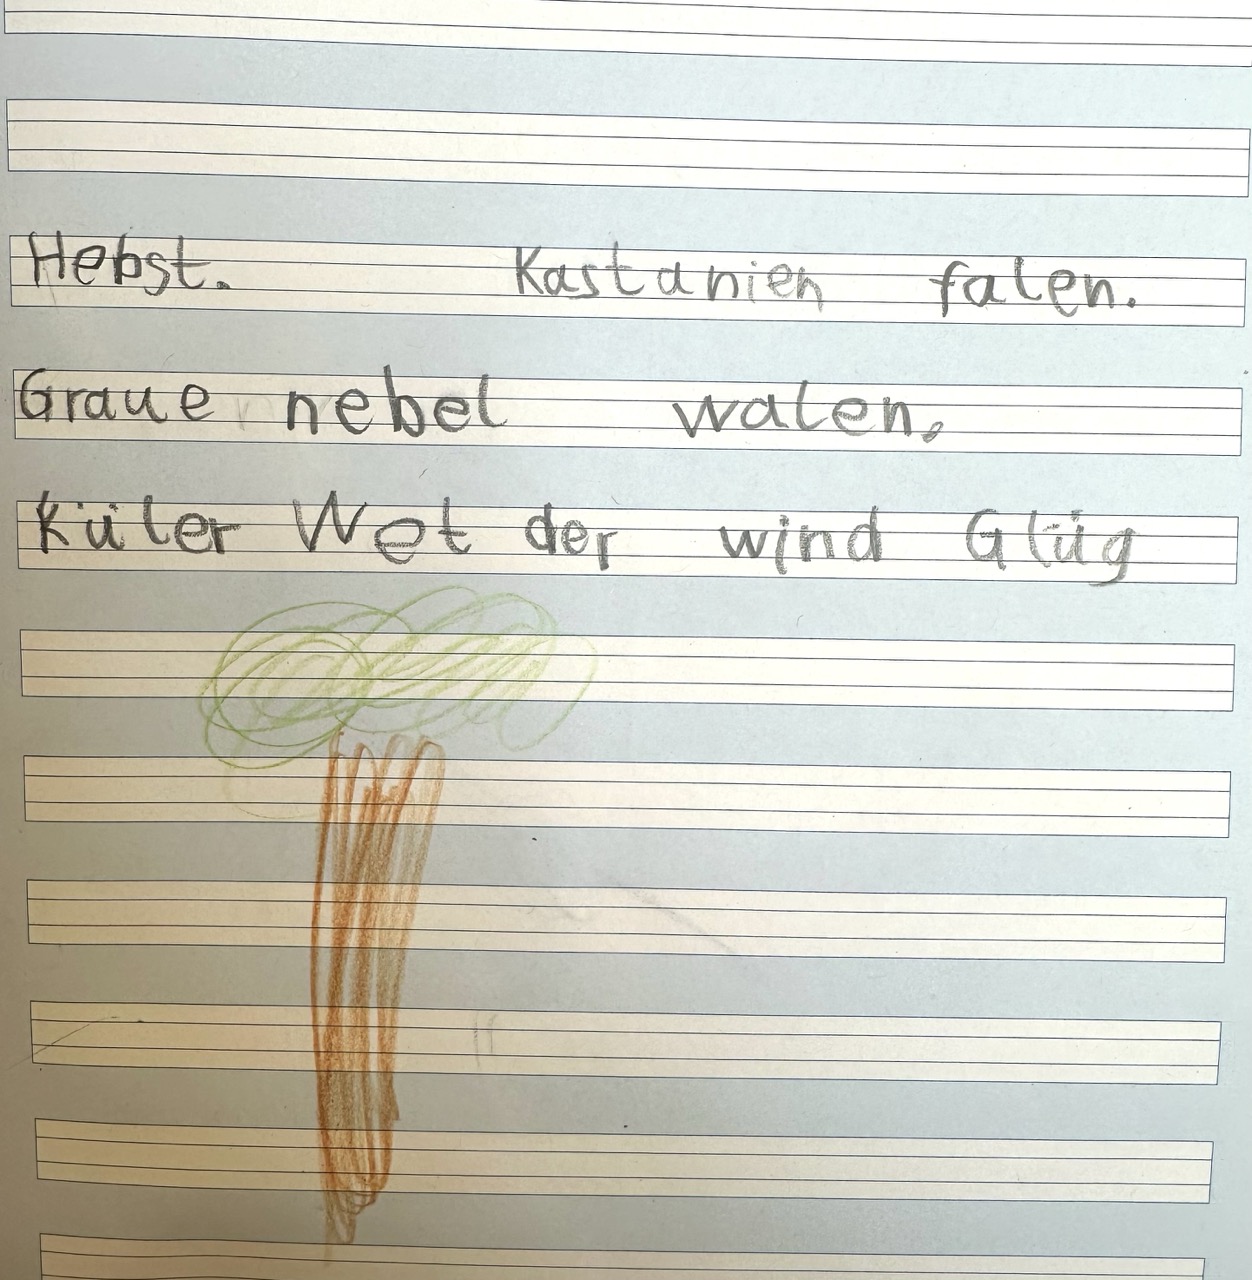 Hebst. Kastanien falen.
Graue nebel walen.
Küler Wet der wind Glüg